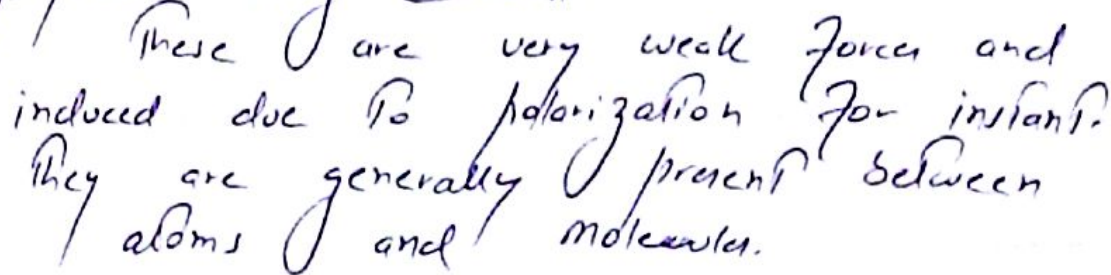 These are very weak forces and
induced due to polarization for instant.
They are generally present between
atoms and molecules.